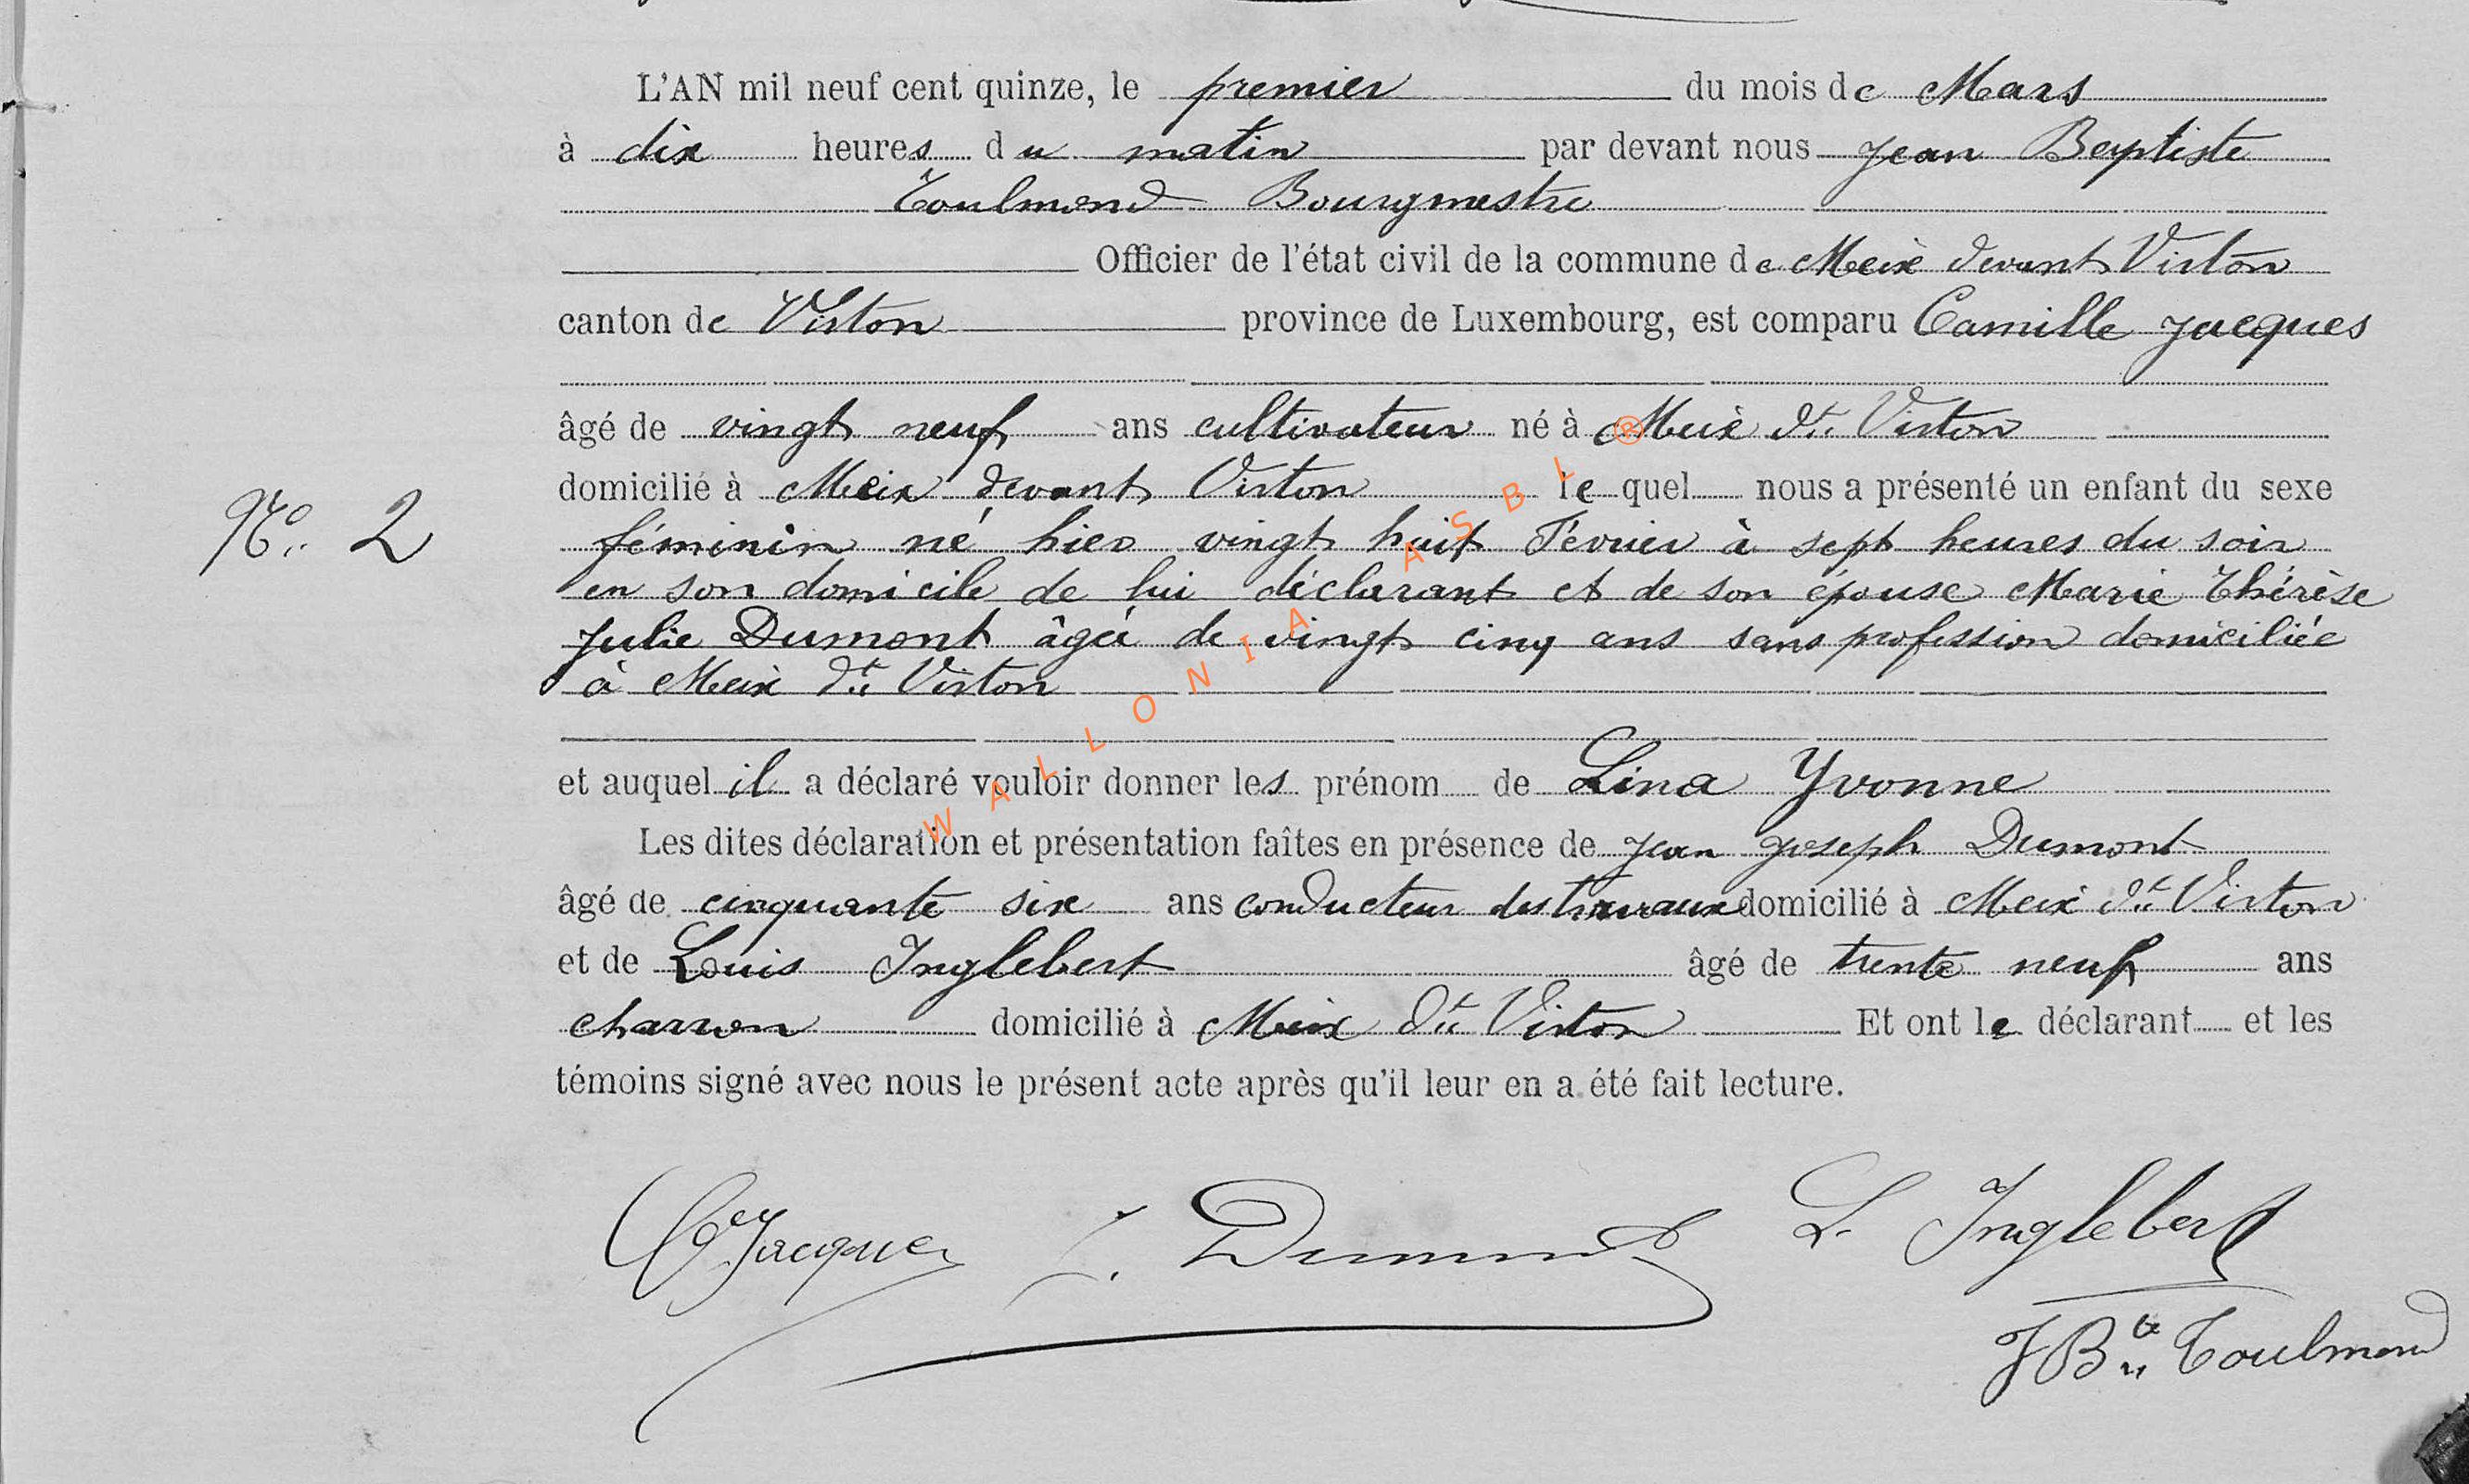 L'AN mil neuf cent quinze, le premier du mois de Mars
à dix heures du matin par devant nous Jean Baptiste
Toulmond Bourgmestre
Officier de l'état civil de la commune de Meix devant Virton
canton de Virton province de Luxembourg, est comparu Camille Jacques
âgé de vingt neuf ans cultivateur né à Meix dt Virton
domicilié à Meix devant Virton lequel nous a présenté un enfant du sexe
N° 2
féminin né hier vingt huit Février à sept heures du soir
en son domicile de lui déclarant et de son épouse Marie Thérèse
Julie Dumont âgée de vingt cinq ans sans profession domiciliée
à Meix dt Virton
et auquel il a déclaré vouloir donner les prénom de Lina Yvonne
Les dites déclaration et présentation faîtes en présence de Jean Joseph Dumont
âgé de cinquante six ans conducteur des travaux domicilié à Meix dt Virton
et de Louis Inglebert âgé de trente neuf ans
charron domicilié à Meix dt Virton Et ont le déclarant et les
témoins signé avec nous le présent acte après qu'il leur en a été fait lecture.
Cle Jacques J. Dumont L. Inglebert
JBte Toulmond
WALLONIA ASBL ®